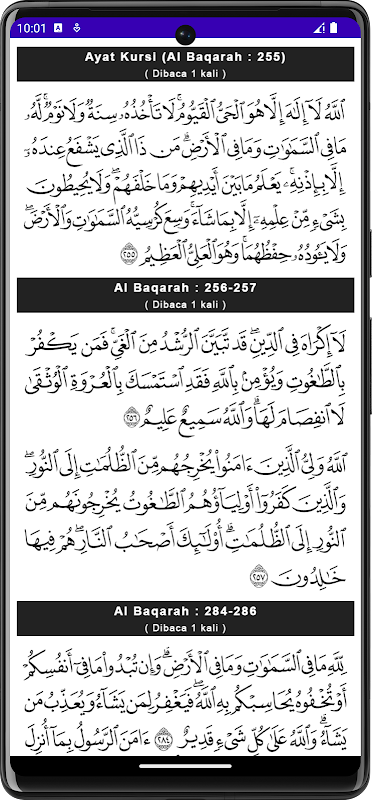 10:01
Ayat Kursi (Al Baqarah : 255)
( Dibaca 1 kali )
اللَّهُ لَآ إِلَٰهَ إِلَّا هُوَ الْحَيُّ الْقَيُّومُ ۚ لَا تَأْخُذُهُ سِنَةٌ وَلَا نَوْمٌ ۚ لَّهُ
مَا فِي السَّمَٰوَٰتِ وَمَا فِي الْأَرْضِ ۗ مَن ذَا الَّذِي يَشْفَعُ عِندَهُ
إِلَّا بِإِذْنِهِ ۚ يَعْلَمُ مَا بَيْنَ أَيْدِيهِمْ وَمَا خَلْفَهُمْ ۖ وَلَا يُحِيطُونَ
بِشَيْءٍ مِّنْ عِلْمِهِ إِلَّا بِمَا شَآءَ ۚ وَسِعَ كُرْسِيُّهُ السَّمَٰوَٰتِ وَالْأَرْضَ ۖ
وَلَا يَـُٔودُهُ حِفْظُهُمَا ۚ وَهُوَ الْعَلِيُّ الْعَظِيمُ ٢٥٥
Al Baqarah : 256-257
( Dibaca 1 kali )
لَآ إِكْرَاهَ فِي الدِّينِ ۖ قَد تَّبَيَّنَ الرُّشْدُ مِنَ الْغَيِّ ۚ فَمَن يَكْفُرْ
بِالطَّٰغُوتِ وَيُؤْمِنۢ بِاللَّهِ فَقَدِ اسْتَمْسَكَ بِالْعُرْوَةِ الْوُثْقَىٰ
لَا انفِصَامَ لَهَا ۗ وَاللَّهُ سَمِيعٌ عَلِيمٌ ٢٥٦
اللَّهُ وَلِيُّ الَّذِينَ ءَامَنُوا۟ يُخْرِجُهُم مِّنَ الظُّلُمَٰتِ إِلَى النُّورِ ۖ
وَالَّذِينَ كَفَرُوٓا۟ أَوْلِيَآؤُهُمُ الطَّٰغُوتُ يُخْرِجُونَهُم مِّنَ
النُّورِ إِلَى الظُّلُمَٰتِ ۗ أُو۟لَٰٓئِكَ أَصْحَٰبُ النَّارِ ۖ هُمْ فِيهَا
خَٰلِدُونَ ٢٥٧
Al Baqarah : 284-286
( Dibaca 1 kali )
لِّلَّهِ مَا فِي السَّمَٰوَٰتِ وَمَا فِي الْأَرْضِ ۗ وَإِن تُبْدُوا۟ مَا فِيٓ أَنفُسِكُمْ
أَوْ تُخْفُوهُ يُحَاسِبْكُم بِهِ اللَّهُ ۖ فَيَغْفِرُ لِمَن يَشَآءُ وَيُعَذِّبُ مَن
يَشَآءُ ۗ وَاللَّهُ عَلَىٰ كُلِّ شَيْءٍ قَدِيرٌ ٢٨٤ ءَامَنَ الرَّسُولُ بِمَآ أُنزِلَ